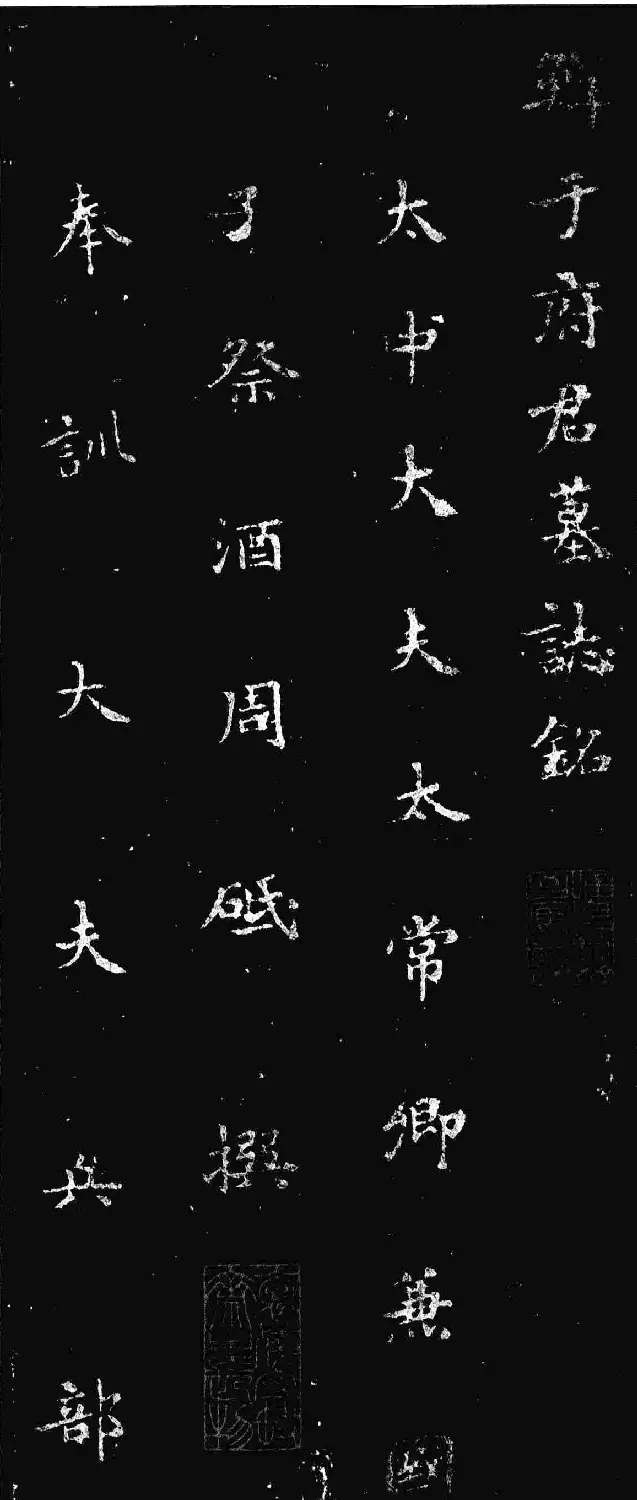 鮮于府君墓誌銘
太中大夫太常卿兼國
子祭酒周砥撰
奉訓大夫兵部